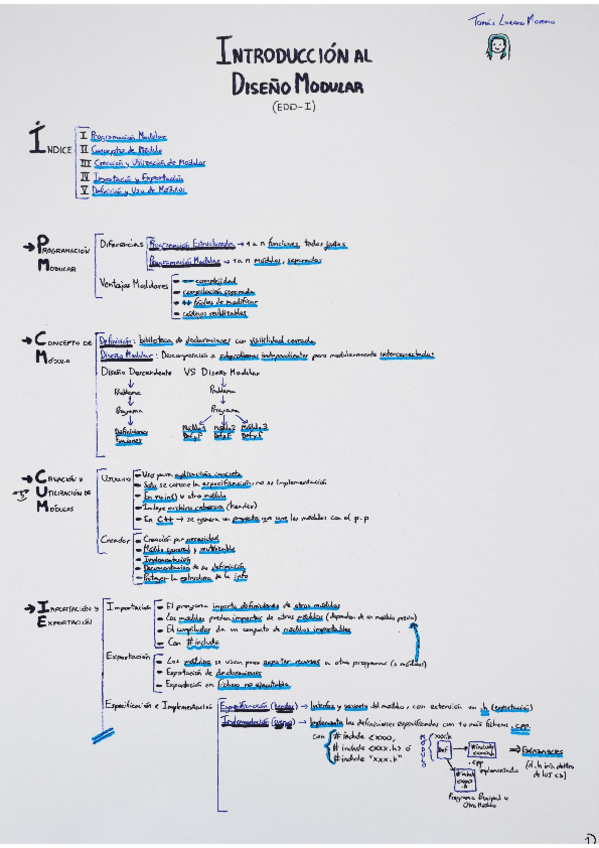 Tomás Lorenzo Moreno
INTRODUCCIÓN AL
DISEÑO MODULAR
(EDD-I)
ÍNDICE
I Programación Modular
II Concepto de Módulo
III Creación y Utilización de Módulos
IV Importación y Exportación
V Definición y Uso de Módulos
→ PROGRAMACIÓN MODULAR
Diferencias
Programación Estructurada → 1 a n funciones, todas juntas
Programación Modular → 1 a n módulos, separados
Ventajas Modulares
complejidad
compilación separada
++ fáciles de modificar
códigos reutilizables
→ CONCEPTO DE MÓDULO
Definición: biblioteca de declaraciones con visibilidad cerrada
Diseño Modular: Descomposición a subproblemas independientes para modularmente interconectados
Diseño Descendente VS Diseño Modular
Problema Problema
Programa Programa
Definiciones Módulo 1 Módulo 2 Módulo 3
Funciones Def y F Def y F Def y F
→ CREACIÓN Y UTILIZACIÓN DE MÓDULOS
Usuario
- Uso para aplicación concreta
- Solo se conoce la especificación, no su implementación
- En main() u otro módulo
- Incluye archivo cabecera (header)
- En C++ → se genera un proyecto que une los módulos con el p.p
Creador
- Creación por necesidad
- Módulo general y reutilizable
- Implementación
- Documentación de su definición
- la estructura de la info
→ IMPORTACIÓN Y EXPORTACIÓN
Importación
- El programa importa definiciones de otros módulos
- Los módulos pueden importar de otros módulos (dependen de un módulo previo)
- El compilador da un conjunto de módulos importables
- Con #include
Exportación
- Los módulos se usan para exportar recursos a otro programa (o módulos)
- Exportación de declaraciones
- Exportación en fichero no ejecutable
Especificación e Implementación
Especificación (header) → Interfaz y del módulo, con extensión en .h (exportación)
Implementación → Implementa las definiciones especificadas con 1 o más ficheros .cpp
con
#include <xxx>
#include <xxx.h> ó
#include "xxx.h"
MÓDULO
xxx.h
DeF
#include
.cpp
implementación
Programa Principal u
Otro Módulo
1)